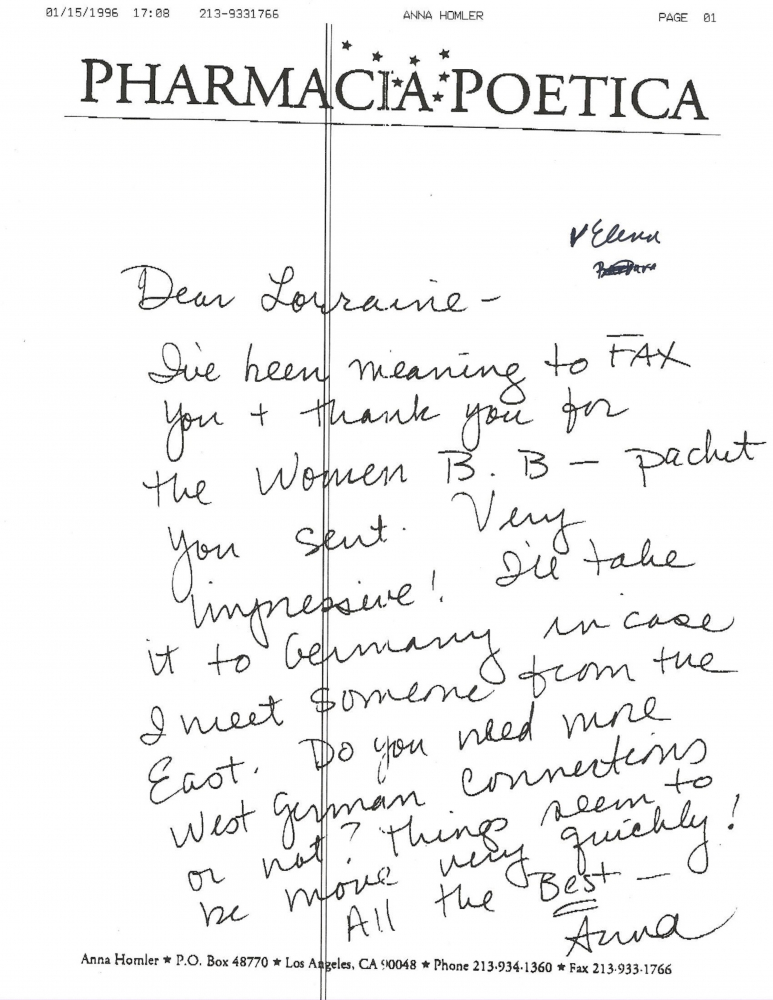 01/15/1996 17:08 213-9331766 ANNA HOMLER PAGE 01
PHARMACIA POETICA
√ Elena
Dear Lorraine -
I've been meaning to FAX
you + thank you for
the Women B. B - packet
you sent. Very
impressive! I'll take
it to Germany in case
I meet someone from the
East. Do you need more
West German connections
or not? Things seem to
be move very quickly!
All the Best -
Anna
Anna Homler ★ P.O. Box 48770 ★ Los Angeles, CA 90048 ★ Phone 213·934·1360 ★ Fax 213·933·1766